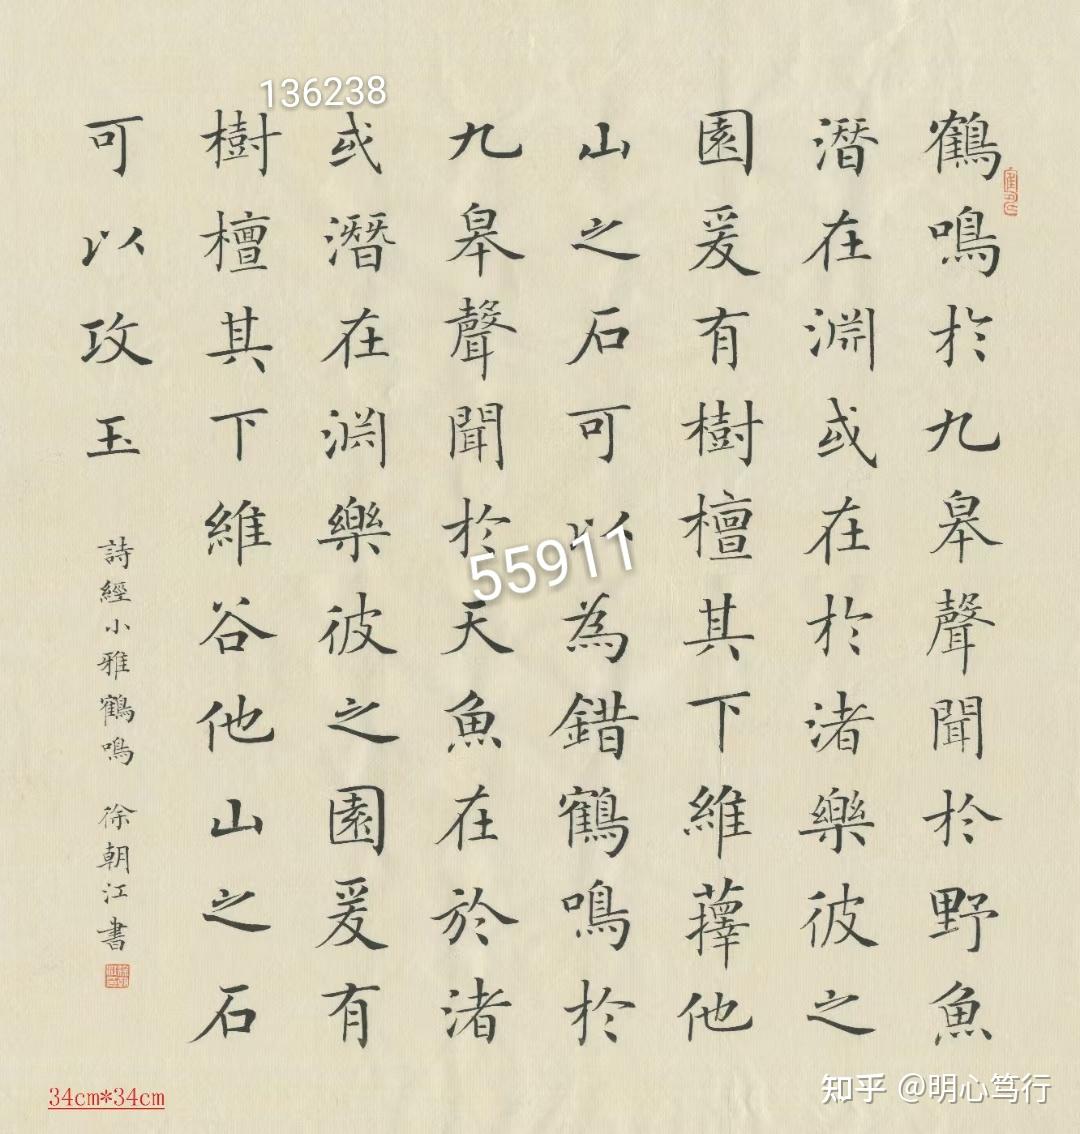 鶴鳴於九皋聲聞於野魚
潛在淵或在於渚樂彼之
園爰有樹檀其下維蘀他
山之石可以為錯鶴鳴於
九皋聲聞於天魚在於渚
或潛在淵樂彼之園爰有
樹檀其下維谷他山之石
可以攻玉
詩經小雅鶴鳴 徐朝江書
136238
55911
34cm*34cm
知乎 @明心笃行